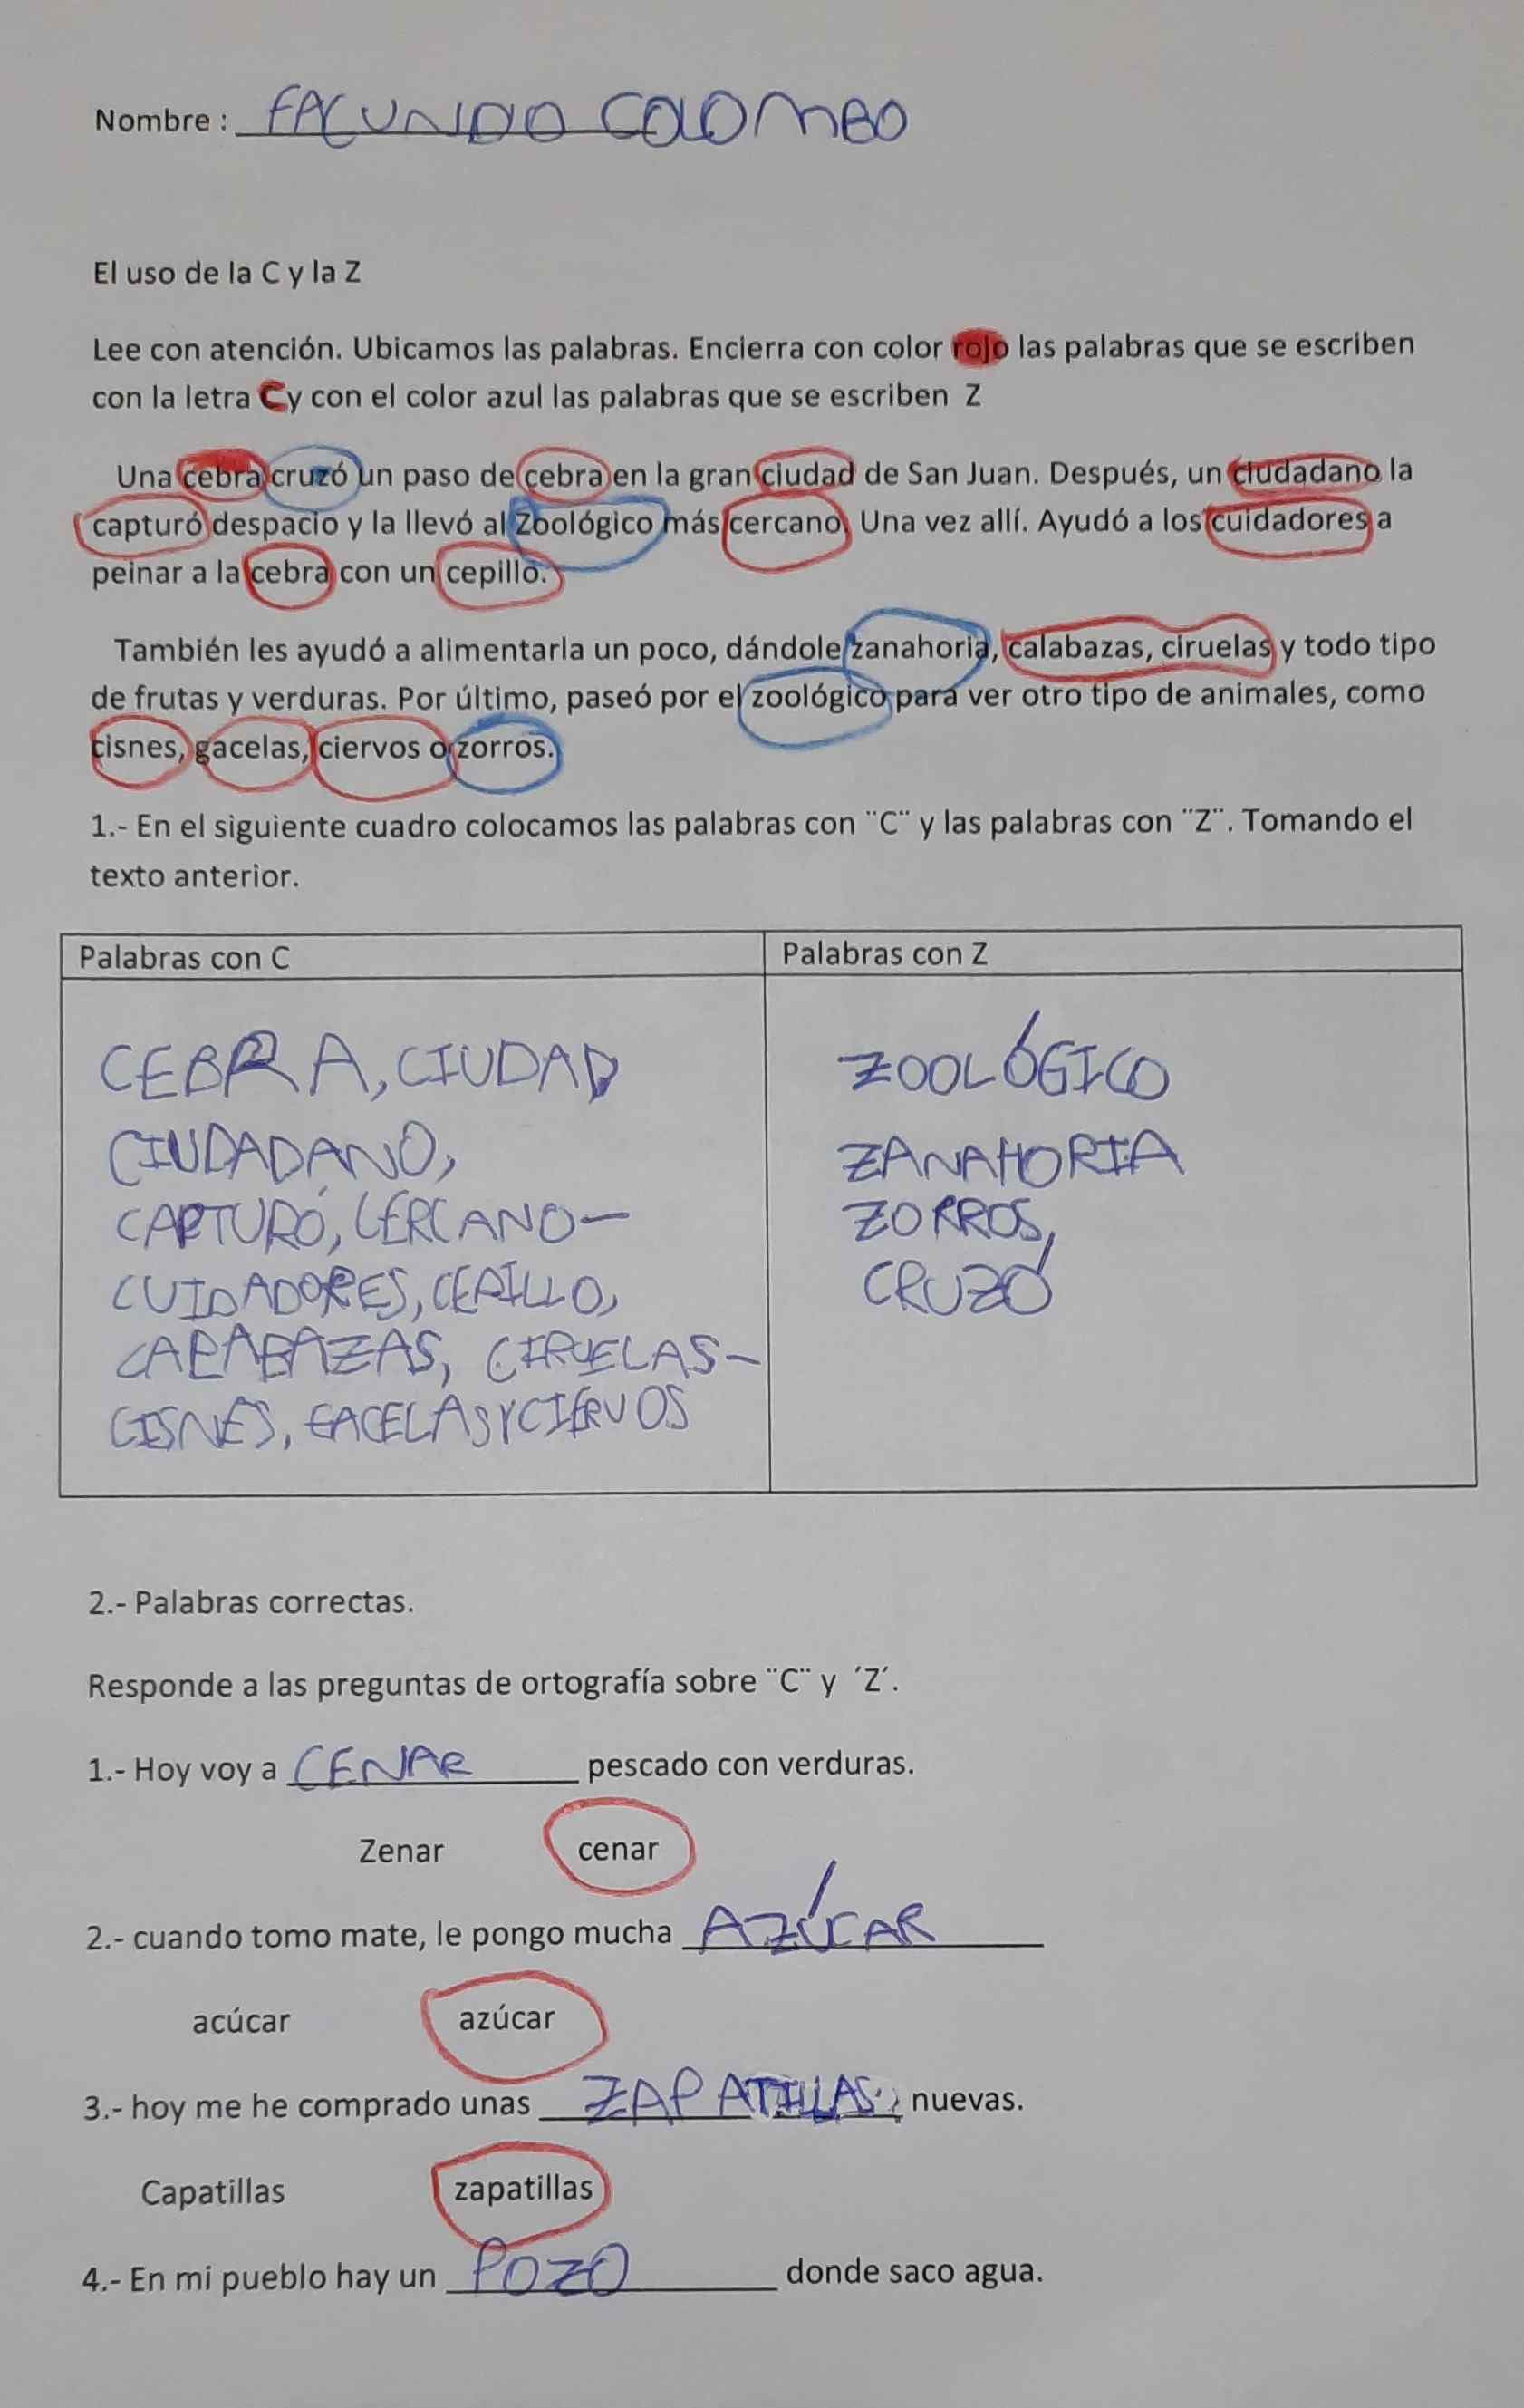 Nombre : FACUNDO COLOMBO
El uso de la C y la Z
Lee con atención. Ubicamos las palabras. Encierra con color rojo las palabras que se escriben
con la letra C y con el color azul las palabras que se escriben Z
Una cebra cruzó un paso de cebra en la gran ciudad de San Juan. Después, un ciudadano la
capturó despacio y la llevó al Zoológico más cercano. Una vez allí. Ayudó a los cuidadores a
peinar a la cebra con un cepillo.
También les ayudó a alimentarla un poco, dándole zanahoria, calabazas, ciruelas y todo tipo
de frutas y verduras. Por último, paseó por el zoológico para ver otro tipo de animales, como
cisnes, gacelas, ciervos o zorros.
1.- En el siguiente cuadro colocamos las palabras con ¨C¨ y las palabras con ¨Z¨. Tomando el
texto anterior.
Palabras con C
CEBRA, CIUDAD
CIUDADANO,
CAPTURÓ, CERCANO—
CUIDADORES, CEPILLO,
CALABAZAS, CIRUELAS—
CISNES, GACELAS Y CIERVOS
Palabras con Z
ZOOLÓGICO
ZANAHORIA
ZORROS,
CRUZÓ
2.- Palabras correctas.
Responde a las preguntas de ortografía sobre ¨C¨ y ´Z´.
1.- Hoy voy a CENAR pescado con verduras.
Zenar cenar
2.- cuando tomo mate, le pongo mucha AZÚCAR
acúcar azúcar
3.- hoy me he comprado unas ZAPATILLAS, nuevas.
Capatillas zapatillas
4.- En mi pueblo hay un POZO donde saco agua.